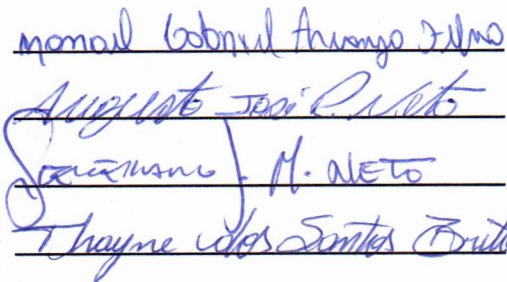 manoel Gabriel Arcanjo Filho
Augusto José P. Neto
J. M. NETO
Thayne dos Santos Brito